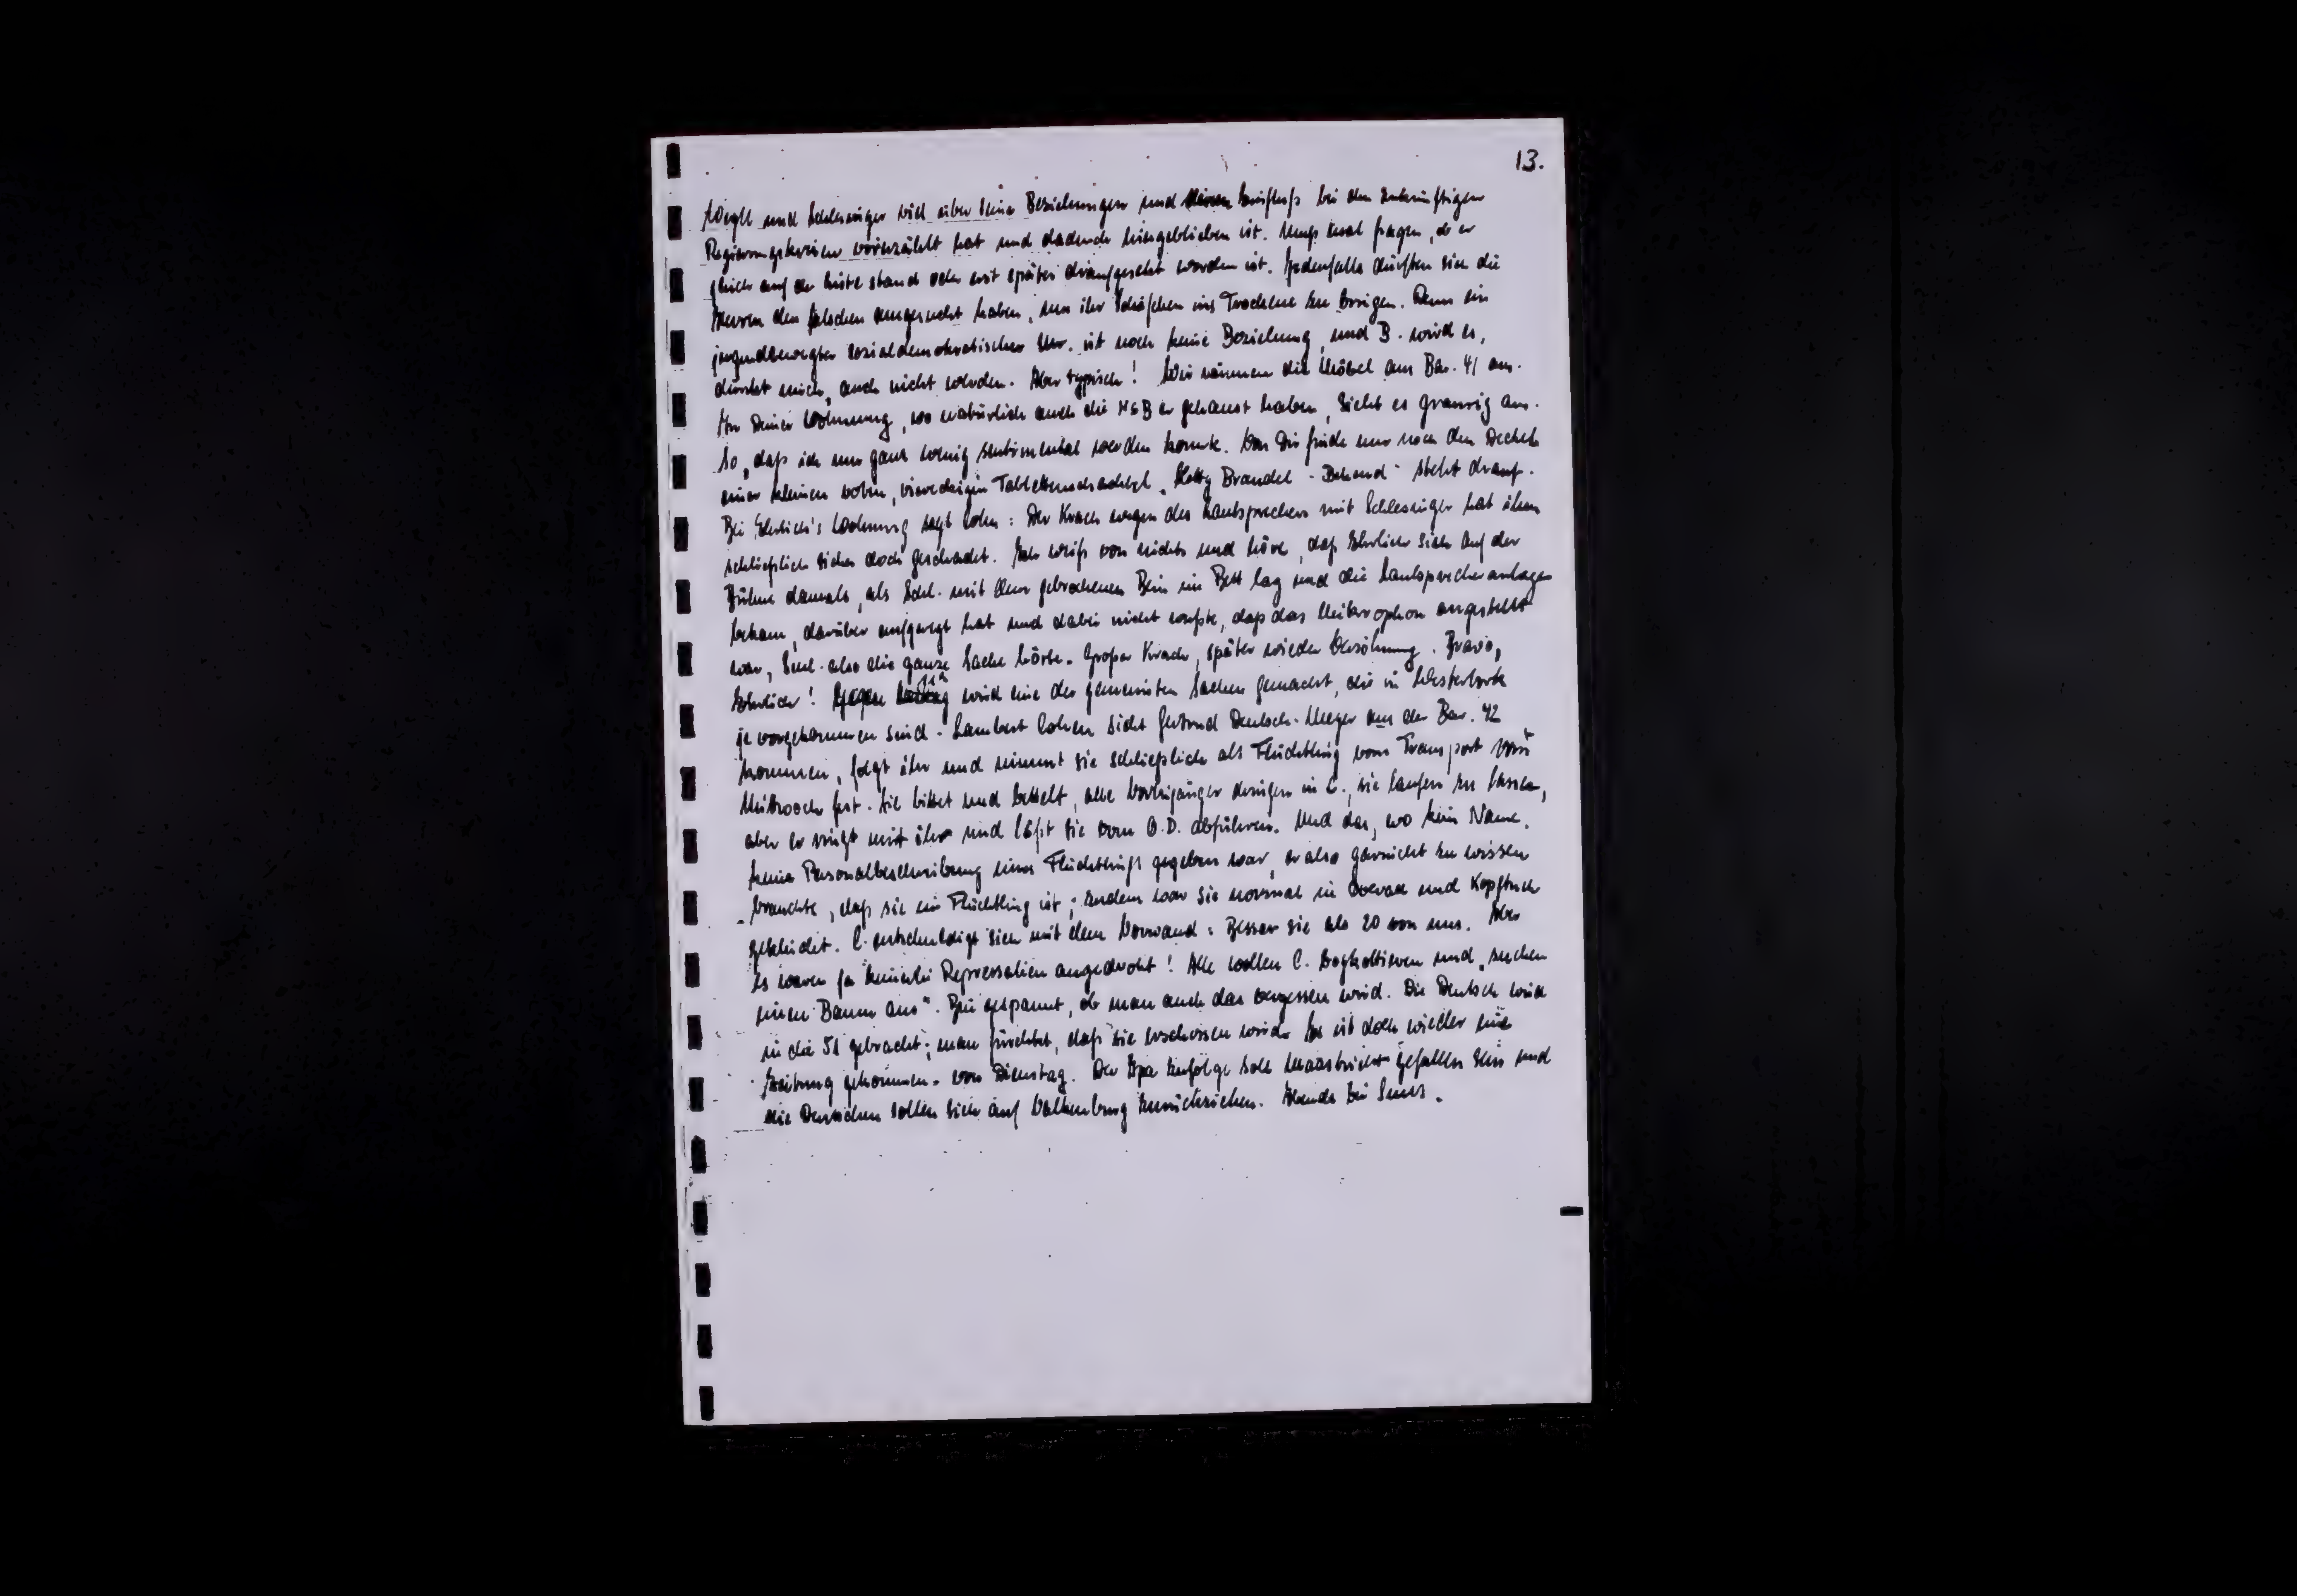 13.
Weyll und Schlesinger viel über seine Beziehungen und seinen Einfluß bei den zukünftigen
Regierungskreisen vorerzählt hat und dadurch hiergeblieben ist. Muß mal fragen, ob er
gleich auf der Liste stand oder erst später draufgesetzt worden ist. Jedenfalls dürften sich die
Herren den falschen ausgesucht haben, um ihr Schäfchen ins Trockene zu bringen. Denn ein
jugendbewegter sozialdemokratischer ist noch keine Beziehung, und B. wird es,
dünkt mich, auch nicht werden. Aber typisch! Wir räumen die Möbel aus Bar. 41 aus.
In Deiner Wohnung, wo natürlich auch die NSB er gehaust haben, sieht es grausig aus.
So, daß ich nur ganz wenig sentimental werden konnte. Von Dir finde nur noch den Deckel
einer kleinen roten, viereckigen Tablettenschachtel, Hetty Brandel - Behand - steht drauf.
Bei Ehrlich's Wohnung sagt Cohn: Der Krach wegen des Lautsprechers mit Schlesinger hat ihm
schließlich sicher doch geschadet. Ich weiß von nichts und höre, daß Ehrlich sich auf der
Bühne damals, als Schl. mit dem gebrochenen Bein im Bett lag und die Lautsprecheranlage
bekam, darüber aufgeregt hat und dabei nicht wußte, daß das Mikrophon angestellt
war, Schl. also die ganze Sache hörte. Großer Krach, später wieder Versöhnung. Bravo,
Ehrlich! Gegen wird eine der gemeinsten Sachen gemacht, die in Westerbork
je vorgekommen sind. Lambert Cohen sieht Gertrud Deutsch-Meyer aus der Bar. 42
kommen, folgt ihr und nimmt sie schließlich als Flüchtling vom Transport vom
Mittwoch fest. Sie bittet und bettelt, alle Vorbeigänger dringen in C., sie laufen zu lassen,
aber er ringt mit ihr und läßt sie vom O.D. abführen. Und das, wo kein Name,
keine Personalbeschreibung eines Flüchtlings gegeben war, er also garnicht zu wissen
brauchte, daß sie ein Flüchtling ist; zudem war sie normal in Overall und Kopftuch
gekleidet. C. entschuldigt sich mit dem Vorwand: Besser sie als 20 von uns. Aber
es waren ja keinerlei Repressalien angedroht! Alle wollen C. boykottieren und „suchen
einen Baum aus". Bin gespannt, ob man auch das vergessen wird. Die Deutsch wird
in die 51 gebracht; man fürchtet, daß sie erschossen wird. Es ist doch wieder eine
Zeitung gekommen - von Dienstag. Der Ipa zufolge soll Maastricht gefallen sein und
die Deutschen sollen sich auf Valkenburg zurückziehen. Abends bei